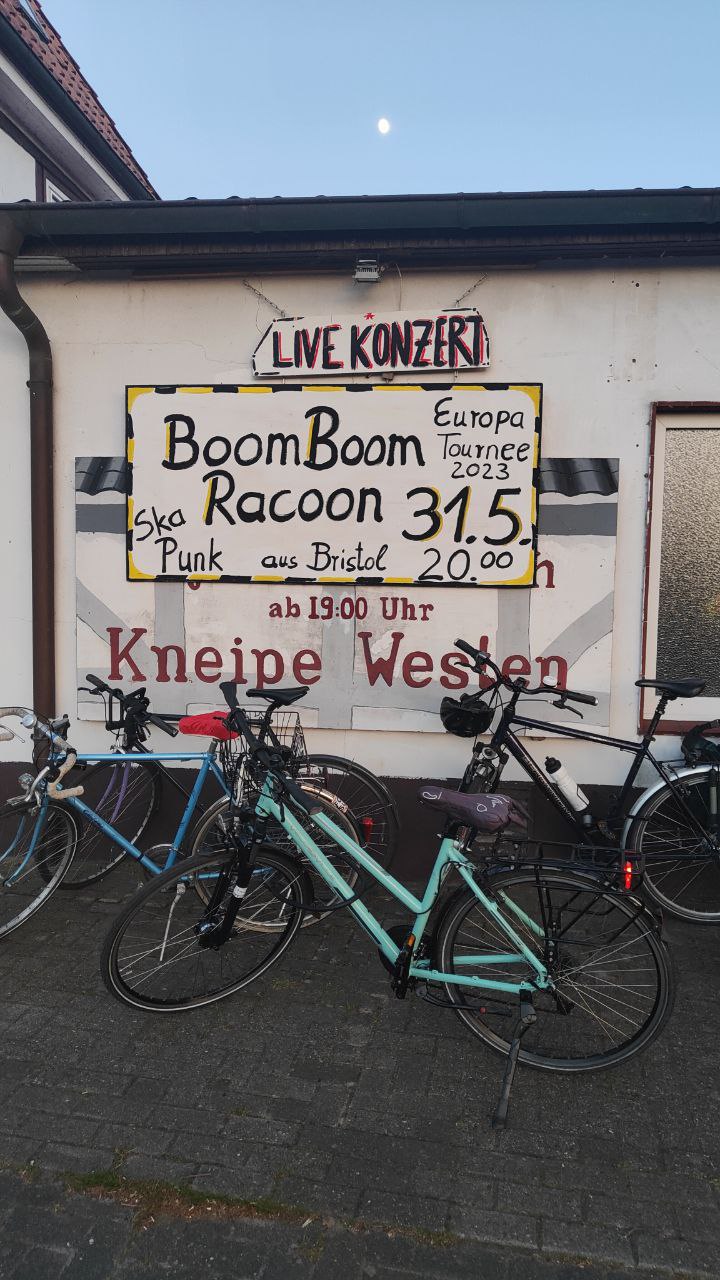 LIVE KONZERT
BoomBoom
Racoon
Europa
Tournee
2023
31.5.
20.00
Ska
Punk
aus Bristol
ab 19:00 Uhr
Kneipe Westen